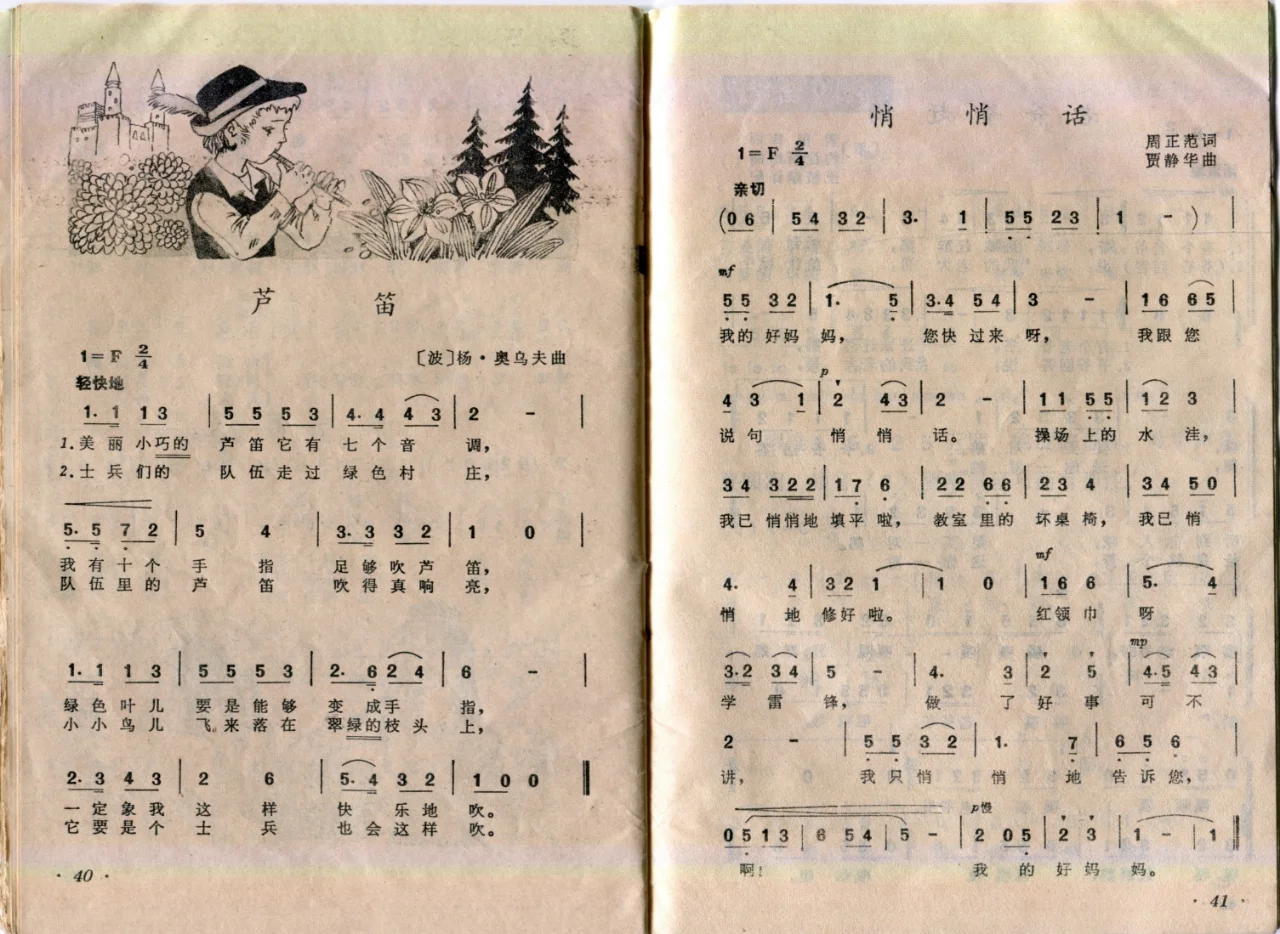 芦笛
1=F 2/4
〔波〕杨·奥乌夫曲
轻快地
1. 1 1 3 | 5 5 5 3 | 4. 4 4 3 | 2 - |
1.美丽小巧的 芦笛它有 七个音 调,
2.士兵们的 队伍走过 绿色村 庄,
5. 5 7 2 | 5 4 | 3. 3 3 2 | 1 0 |
我有十个 手 指 足够吹芦 笛,
队伍里的 芦 笛 吹得真响 亮,
1. 1 1 3 | 5 5 5 3 | 2. 6 2 4 | 6 - |
绿色叶儿 要是能够 变成手 指,
小小鸟儿 飞来落在 翠绿的枝头 上,
2. 3 4 3 | 2 6 | 5. 4 3 2 | 1 0 0 ‖
一定象我 这 样 快 乐地 吹。
它要是个 士 兵 也会这样 吹。
· 40 ·
悄悄话
1=F 2/4
周正范词
贾静华曲
亲切
(0 6 | 5 4 3 2 | 3. 1 | 5 5 2 3 | 1 - ) |
mf
5 5 3 2 | 1. 5 | 3. 4 5 4 | 3 - | 1 6 6 5 |
我的好妈 妈, 您快过来 呀, 我跟您
p
4 3 1 | 2 4 3 | 2 - | 1 1 5 5 | 1 2 3 |
说句 悄悄 话。 操场上的 水洼,
3 4 3 2 2 | 1 7 6 | 2 2 6 6 | 2 3 4 | 3 4 5 0 |
我已悄悄地 填平啦, 教室里的 坏桌椅, 我已悄
mf
4. 4 | 3 2 1 | 1 0 | 1 6 6 | 5. 4 |
悄 地 修好啦。 红领巾 呀
mp
3. 2 3 4 | 5 - | 4. 3 | 2 5 | 4. 5 4 3 |
学雷 锋, 做 了 好事 可不
2 - | 5 5 3 2 | 1. 7 | 6 5 6 |
讲, 我只悄 悄 地 告诉您,
p 慢
0 5 1 3 | 6 5 4 | 5 - | 2 0 5 | 2 3 | 1 - | 1 ‖
啊! 我 的 好妈 妈。
· 41 ·